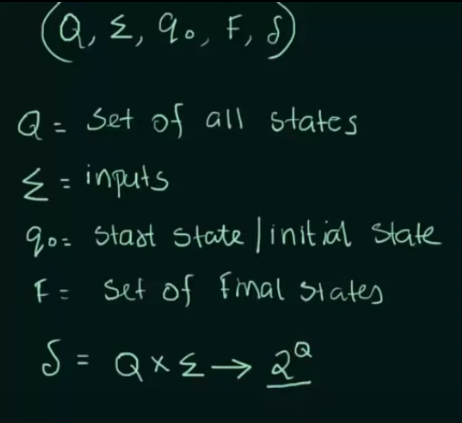 (Q, Σ, q₀, F, δ)
Q = Set of all states
Σ = inputs
q₀ = start state / initial state
F = set of final states
δ = Q × Σ → 2^Q